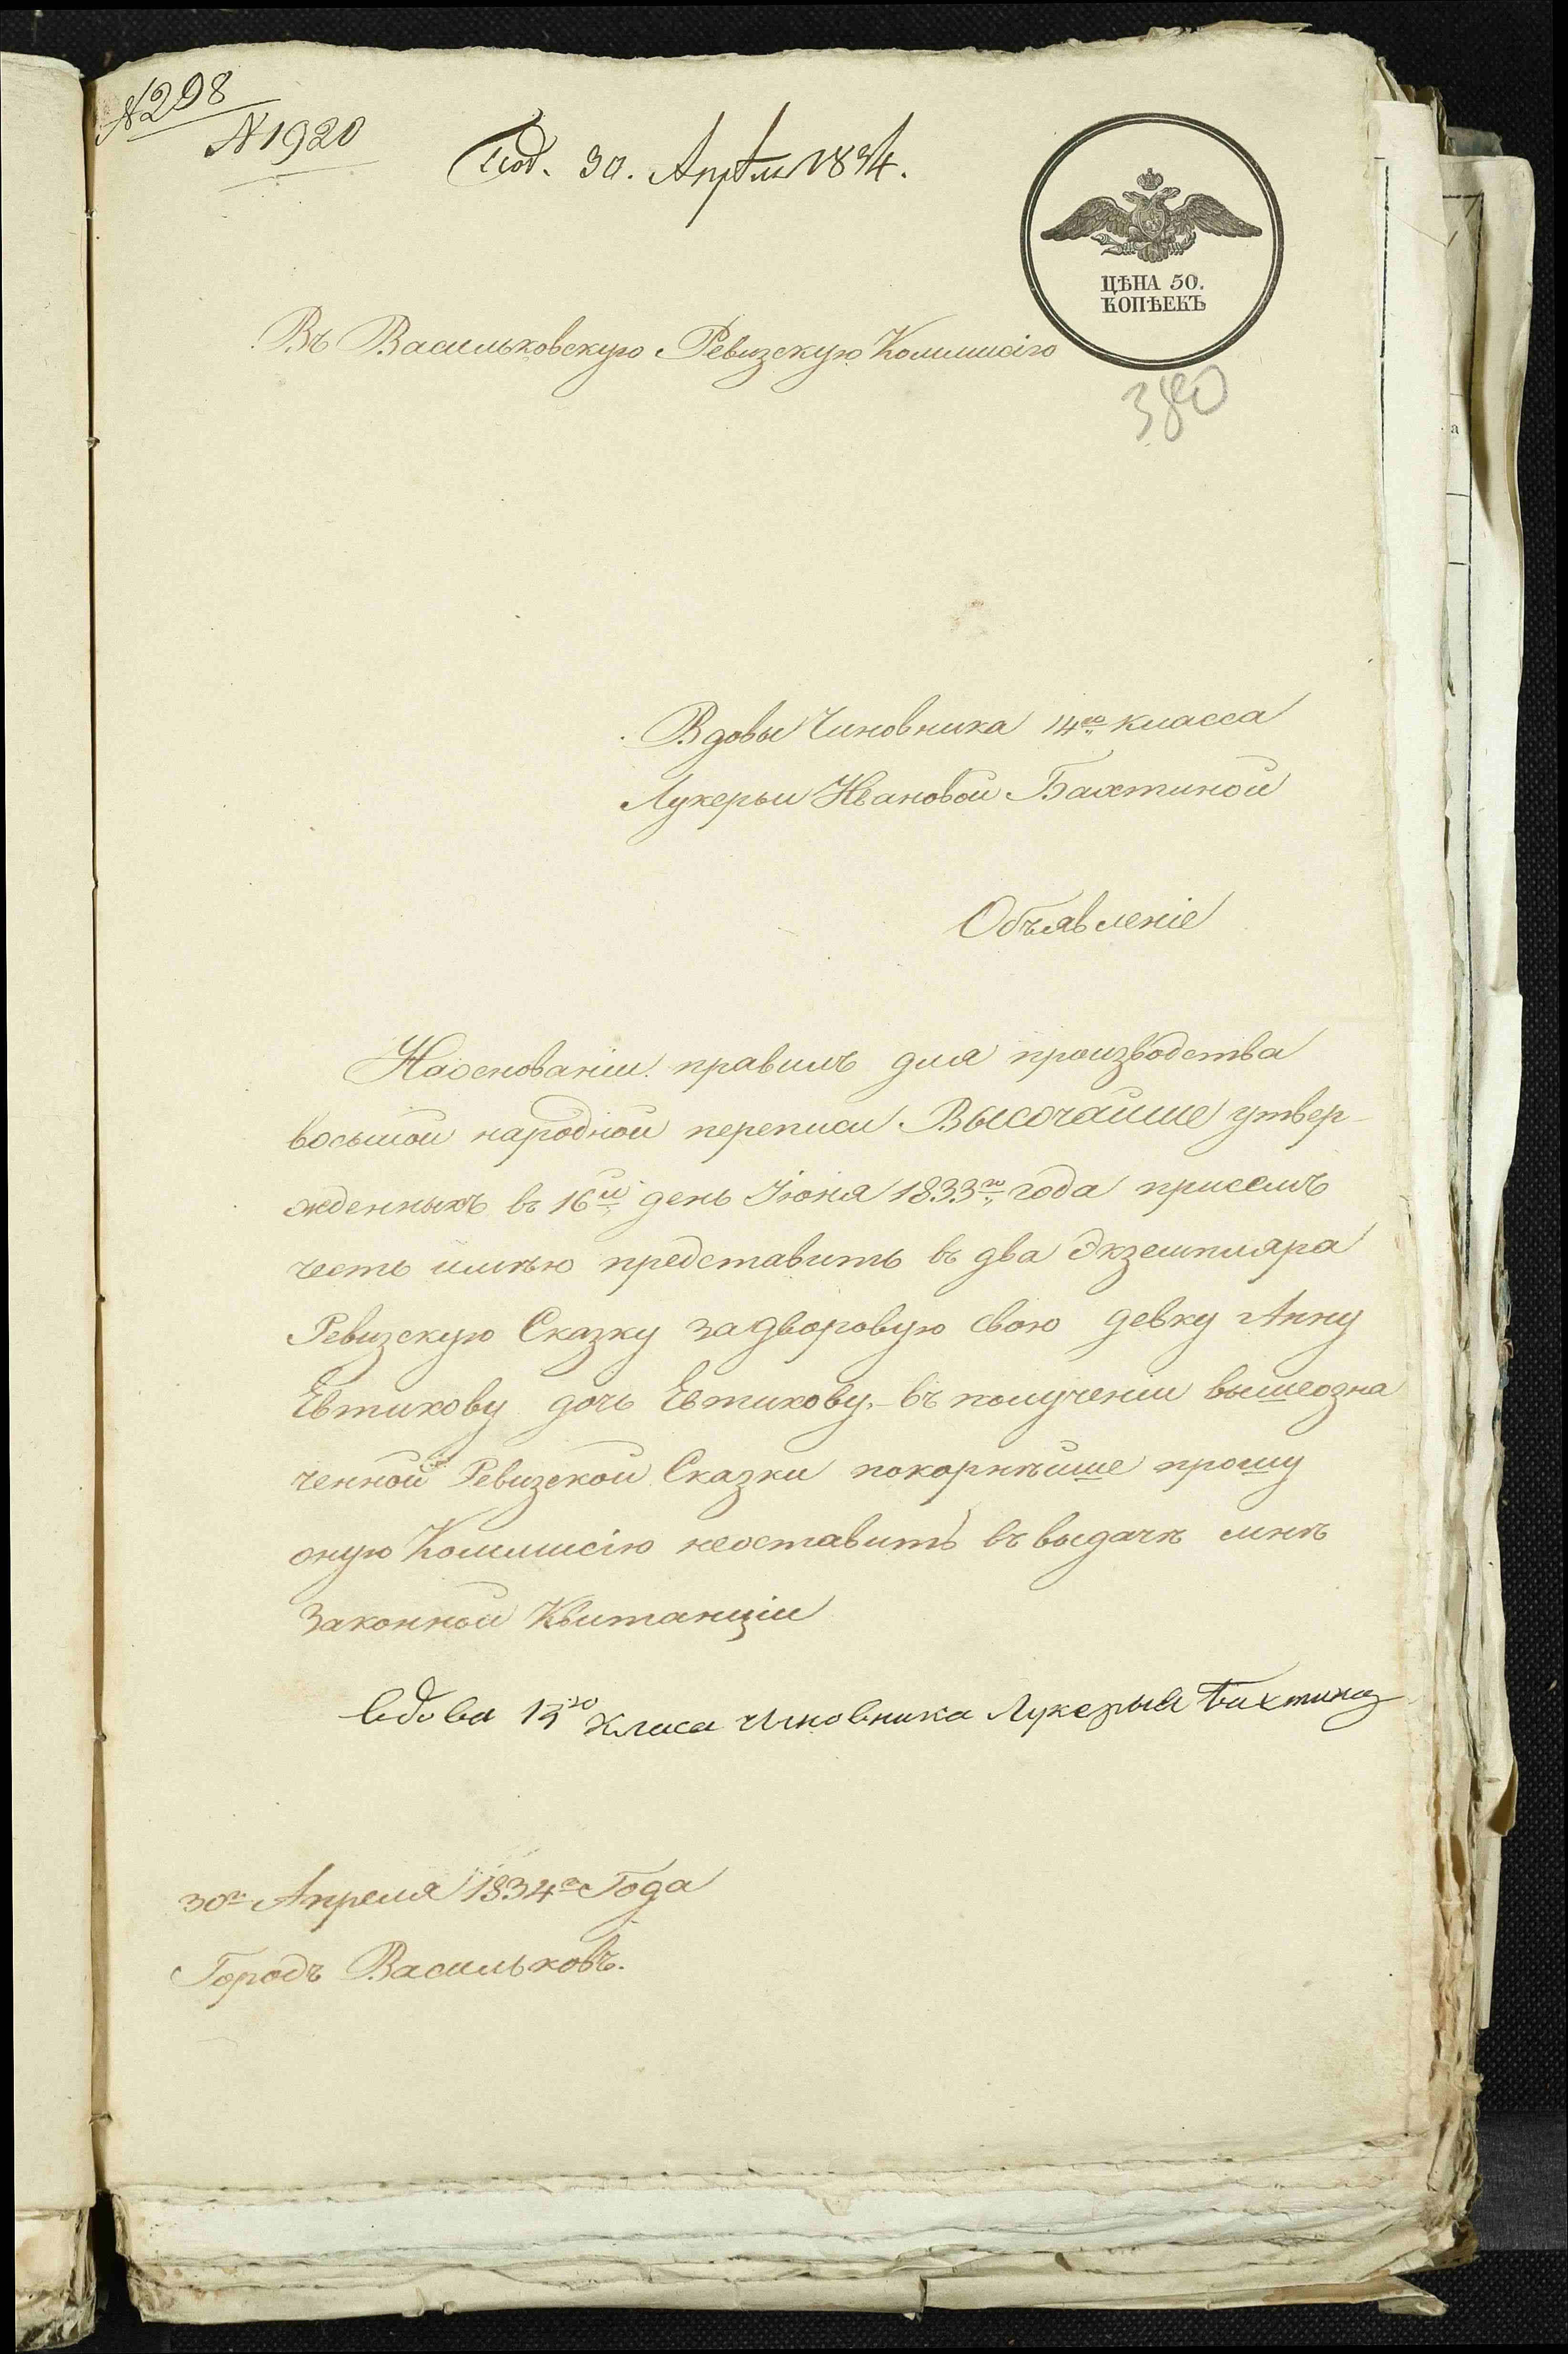 №298
№1920
Пол. 30. Апрѣля 1834.
ЦѢНА 50.
КОПѢЕКЪ
Въ Васильковскую Ревизскую Коммисію
380
Вдовы Чиновника 14го класса
Лукерьи Ивановой Бахтиной
Объявленіе
Наоснованіи правилъ для производства
восьмой народной переписи Высочайше утвер-
жденныхъ въ 16й день Іюня 1833го года присемъ
честь имѣю представить въ два Экземпляра
Ревизскую Сказку задворовую свою девку Анну
Евтихову дочь Евтихову. въ полученіи вышеозна
ченной Ревизской Сказки покорнѣйше прошу
оную Коммисію неоставить въ выдачѣ мнѣ
Законной Квитанціи
вдова 14го класа чыновника Лукерыя Бахтина
30го Апреля 1834го Года
Городъ Васильковъ.